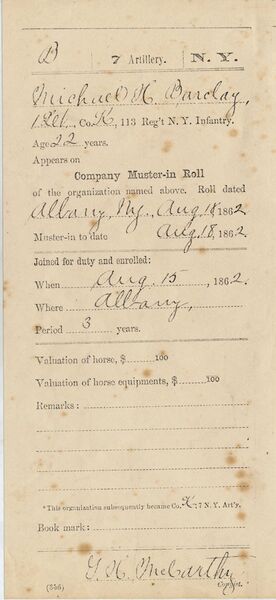 B 7 Artillery. N. Y.
Michael H. Barclay,
1 Lt, Co. K, 113 Reg't N. Y. Infantry.
Age 22 years.
Appears on
Company Muster-in Roll
of the organization named above. Roll dated
Albany, Ny., Aug 18, 1862
Muster-in to date Aug 18, 1862
Joined for duty and enrolled:
When Aug. 15, 1862.
Where Albany,
Period 3 years.
Valuation of horse, $ 100
Valuation of horse equipments, $ 100
Remarks:
*This organization subsequently became Co. K, 7 N. Y. Art'y.
Book mark:
McCarthy
(356) Copyist.